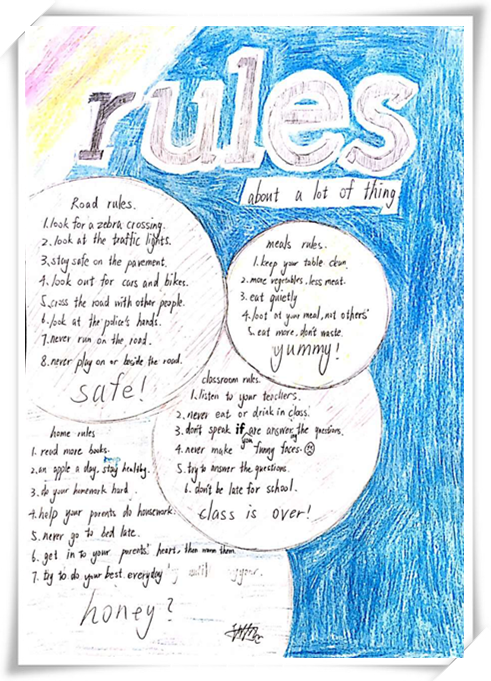 rules
about a lot of thing
Road rules.
1.look for a zebra crossing.
2.look at the traffic lights.
3.stay safe on the pavement.
4.look out for cars and bikes.
5.cross the road with other people.
6.look at the police's hands.
7.never run on the road.
8.never play on or beside the road.
safe!
meals rules.
1.keep your table clean.
2.more vegetables, less meat.
3.eat quietly
4.look at your meal, not others'
5.eat more, don't waste.
yummy!
classroom rules.
1.listen to your teachers.
2.never eat or drink in class.
3.don't speak if you are answering the questions.
4.never make funny faces.
5.try to answer the questions.
6.don't be late for school.
class is over!
home rules
1.read more books.
2.an apple a day, stay healthy.
3.do your homework hard.
4.help your parents do housework.
5.never go to bed late.
6.get in to your parents' hearts, then them
7.try to do your best everyday
honey?